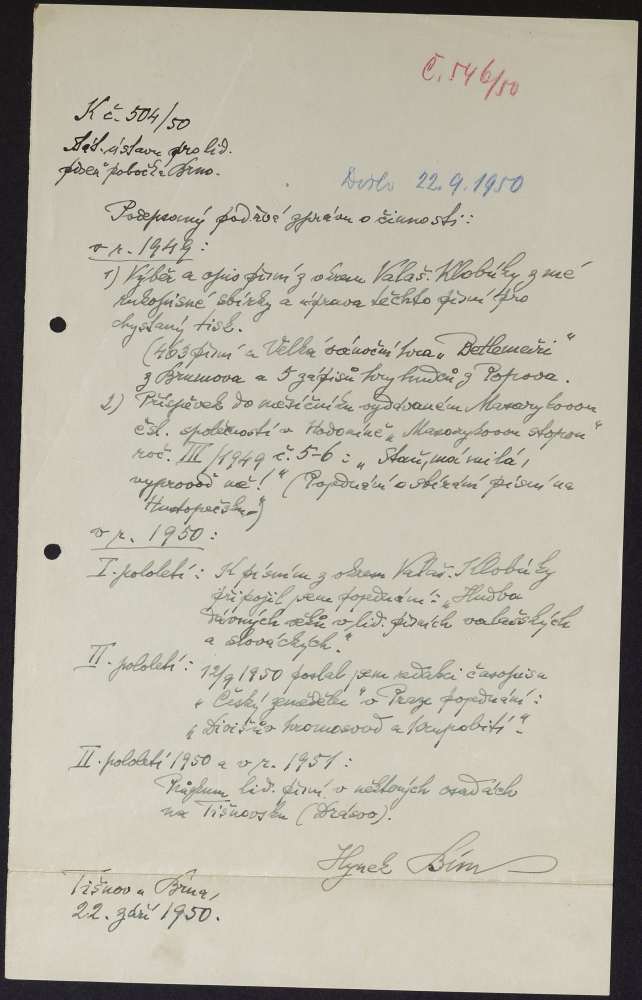 Č. 546/50
K č. 504/50
Stát. ústavu pro lid.
píseň pobočka Brno.
Došlo 22.9.1950
Podepsaný podává zprávu o činnosti:
v r. 1949:
1) Výběr a opis písní z okresu Valaš. Klobúky z mé
rukopisné sbírky a úprava těchto písní pro
chystaný tisk.
(463 písní a Velká vánoční hra „Betlemáři“
z Brumova a 5 zápisů hry hudců z Poprova.
2) Příspěvek do měsíčníku vydávaném Masarykovou
čsl. společností v Hodoníně „Masarykovou stopou“
roč. III/1949 č. 5-6: „Stań, má milá,
vyprovoď mě!“ (Pojednání o sbírání písní na
Hustopečsku.)
v r. 1950:
I. pololetí: K písním z okresu Valaš. Klobúky
připojil jsem pojednání: „Hudba
dávných věků v lid. písních valašských
a slováckých.“
II. pololetí: 12/9 1950 poslal jsem redakci časopisu
„Český zemědělec“ v Praze pojednání:
„Divišův hromosvod a krupobití“.
II. pololetí 1950 a v r. 1951:
Průzkum lid. písní v některých osadách
na Tišnovsku (Drásov).
Hynek Bím
Tišnov u Brna,
22. září 1950.